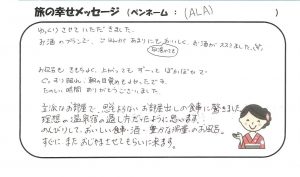 旅の幸せメッセージ (ペンネーム : (ALA) )
ゆっくりさせていただきました。
お酒のプランで、ごはんがあまりにもおいしく、お酒がススミました。
お風呂もきもちよく、上がってもずーっとぽかぽかで
ぐっすり眠れ、朝の目覚めもよかったです。
たのしい時間ありがとうございました。
立派なお部屋で、思いよらないお部屋出しの食事に驚きました。
理想の温泉宿の過し方だったように思います。
のんびりして、おいしい食事・酒・豊かな湯量のお風呂。
すぐにまたおじゃまさせてもらいに来ます。